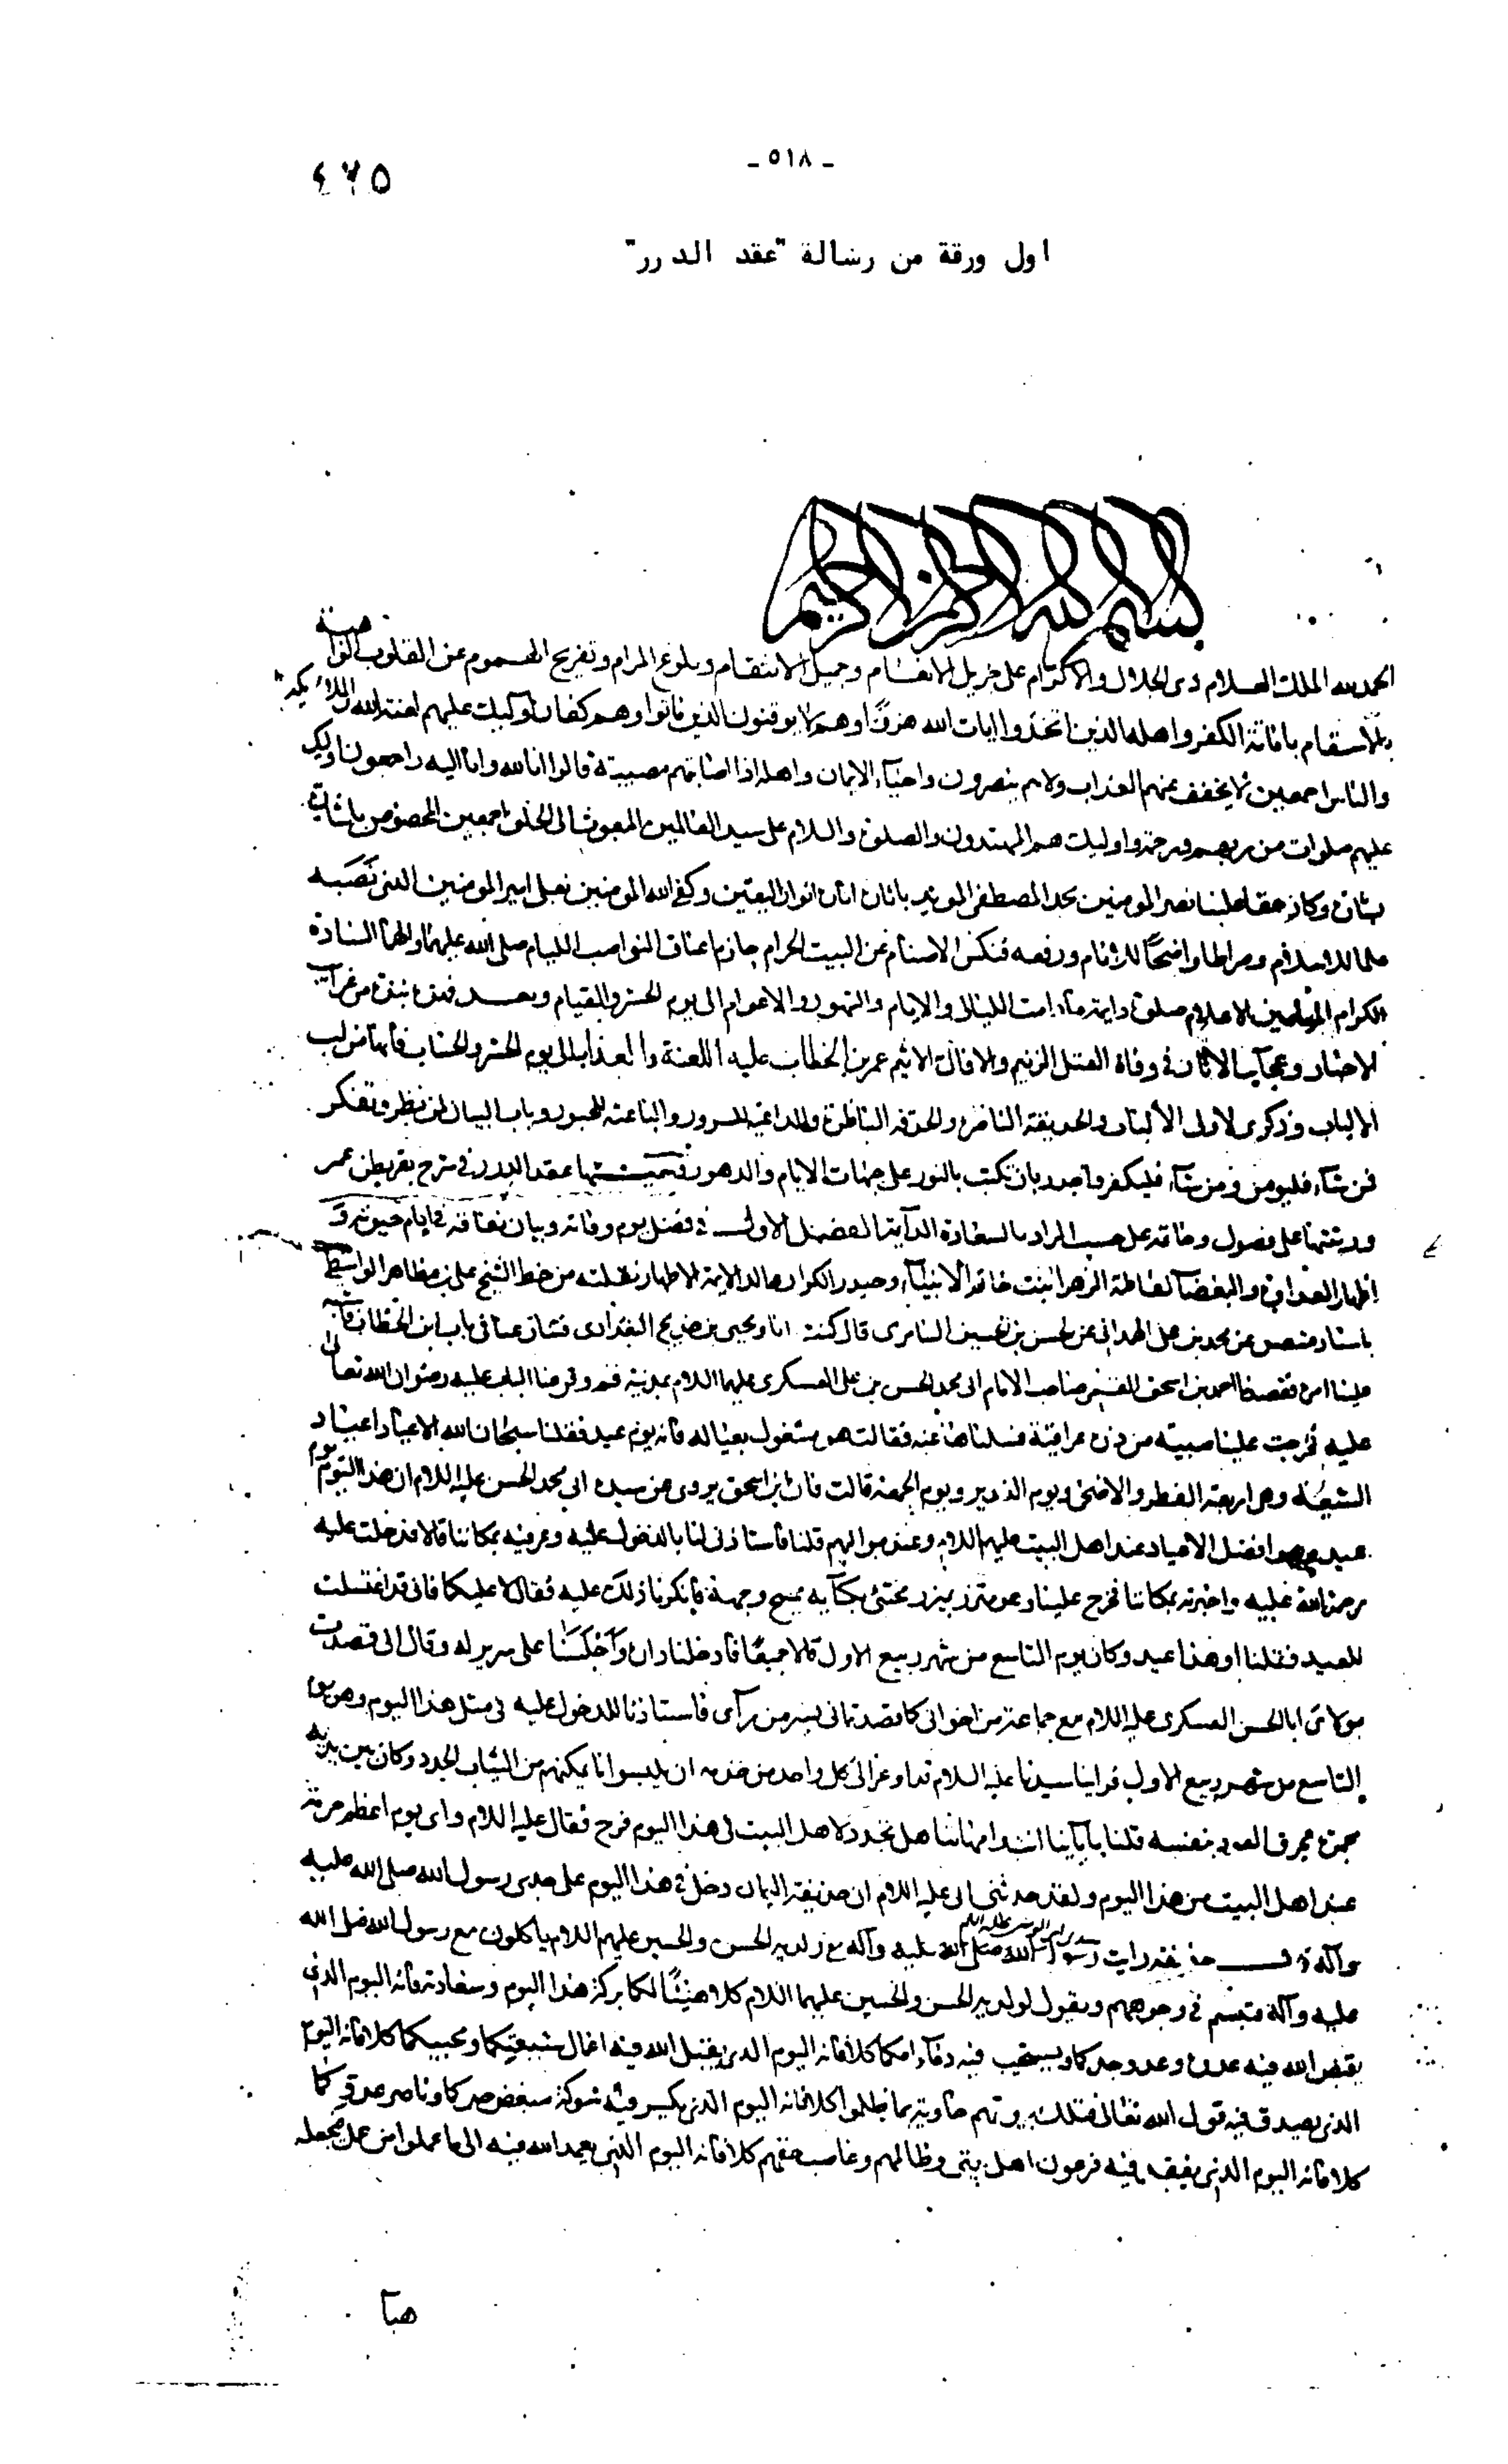 - ٥١٨ -
٤٦٥
اول ورقة من رسالة "عقد الدرر"
بسم الله الرحمن الرحيم
الحمد لله الملك العلام ذى الجلال والاكرام على جزيل الانعام وجميل الانتقام وبلوغ المرام وتفريح الهموم عن القلوب
الكفر واهله الذين اتخذوا ايات الله هزوًا وهم لا يوقنون الذين ماتوا وهم كفار اوليك عليهم لعنة الله والملائكة
والناس اجمعين لا يخفف عنهم العذاب ولا هم ينصرون واحياء الايمان واهله اذا اصابتهم مصيبة قالوا انا لله وانا اليه راجعون اوليك
عليهم صلوات من ربهم ورحمة واوليك هم المهتدون والصلوة والسلام على سيد العالمين المبعوث الى الخلق اجمعين المخصوص
وكان حقا علينا نصر المومنين محمد المصطفى الموئد باثار انوار اليقين وكفى الله المومنين بعلى امير المومنين الذى نَصَبه
علما للاسلام وصراطا واضحًا للانام ورفعه فنكس الاصنام عن البيت الحرام اعناق النواصب الليام صلى الله عليهما والهما السادة
الكرام الاعلام صلوة دايمة ما دامت الليالى والايام والشهور والاعوام الى يوم الحشر والقيام وبعد فهذه نبذة من غرايب
الاخبار وعجايب الاثار فى وفاة العتل الزنيم والافاك الاثيم عمر بن الخطاب عليه اللعنة والعذاب الى يوم الحشر والحساب فانها من لب
الالباب وذكرى لاولى الألباب والحديقة الناضرة والحدقة الناظرة والداعية للسرور والباعثة للحبور وباب البيان لمن نظر وتفكر
فمن شآء فليومن ومن شآء فليكفر وما جدر بان تكتب بالنور على جبهات الايام والدهور فسميتها عقد الدرر فى شرح بقر بطن عمر
ورتبتها على فصول وخاتمة على حسب المراد بالسعادة الفصل الاول فى فضل يوم وفاته وبيان نفاقه فى ايام حيوته و
اظهار العداوة والبغضآ لفاطمة الزهرا بنت خاتم الانبيآء وحيدر الكرار والد الايمة الاطهار نقلته من خط الشيخ على بن مظاهر الواسطى
باسناد متصل عن محمد بن على الهمدانى عن الحسن بن الحسين السامرى قال كنت انا ويحيى بن جريح البغدادى فتنازعنا فى باب ابن الخطاب فاشتبه
علينا امره فقصدنا احمد بن اسحق القمى صاحب الامام ابى محمد الحسن بن على العسكرى عليهما السلام بمدينة قم وقرعنا الباب عليه رضوان الله تعالى
عليه فخرجت علينا صبية من داره عراقية فسلناها عنه فقالت هو مشغول بعياله فانه يوم عيد فقلنا سبحان الله الاعياد اعياد
الشيعة وهى اربعة الفطر والاضحى ويوم الغدير ويوم الجمعة قالت فان ابن اسحق يروى عن سيده ابى محمد الحسن عليه السلام ان هذا اليوم يوم
عيد وهو افضل الاعياد عند اهل البيت عليهم السلام وعند مواليهم قلنا فاستاذنى لنا بالدخول عليه وعرفيه بمكاننا قالا فدخلت عليه
رحمة الله عليه واخبرته بمكاننا فخرج علينا وهو متزر بميزر محتبى بكسآيه يمسح وجهه فانكرنا ذلك عليه فقال لا عليكما فانى قد اغتسلت
للعيد فقلنا او هذا عيد وكان يوم التاسع من شهر ربيع الاول قالا جميعًا فادخلنا داره وأجلسنا على سرير له وقال انى قصدت
مولاى ابا الحسن العسكرى عليه السلام مع جماعة من اخوانى كما قصدتمانى بسر من رآى فاستاذنا للدخول عليه فى مثل هذا اليوم وهو يوم
التاسع من شهر ربيع الاول فراينا سيدنا عليه السلام قد اوعز الى كل واحد من خدمه ان يلبسوا ما يمكنهم من الثياب الجدد وكان بين يديه
مجمرة يحرق العود بنفسه قلنا بآبآينا انت وامهاتنا هل تجدد لاهل البيت فى هذا اليوم فرح فقال عليه السلام واى يوم اعظم حرمة
عند اهل البيت من هذا اليوم ولقد حدثنى ابى عليه السلام ان حذيفة اليمان دخل فى هذا اليوم على جدى رسول الله صلى الله عليه
وآله قال حذيفة رايت رسول الله صلى الله عليه وآله مع ولديه الحسن والحسين عليهم السلام ياكلون مع رسول الله صلى الله
عليه وآله متبسم فى وجوههم ويقول لولديه الحسن والحسين عليهما السلام كلا هنيئًا لكما بركة هذا اليوم وسعادته فانه اليوم الذى
يقبض الله فيه عدوه وعدو جدكما ويستجيب فيه دعآء امكما كلا فانه اليوم الذى يقبل الله فيه اعمال شيعتكما ومحبيكما كلا فانه اليوم
الذى يصدق فيه قول الله تعالى فتلك بيوتهم خاوية بما ظلموا كلا فانه اليوم الذى يكسر فيه شوكة مبغض جدكما وناصر عدوكما
كلا فانه اليوم الذى يفقد فيه فرعون اهل بيتى وظالمهم وغاصب حقهم كلا فانه اليوم الذى يعمد الله فيه الى ما عملوا من عمل فجعله
هبآ